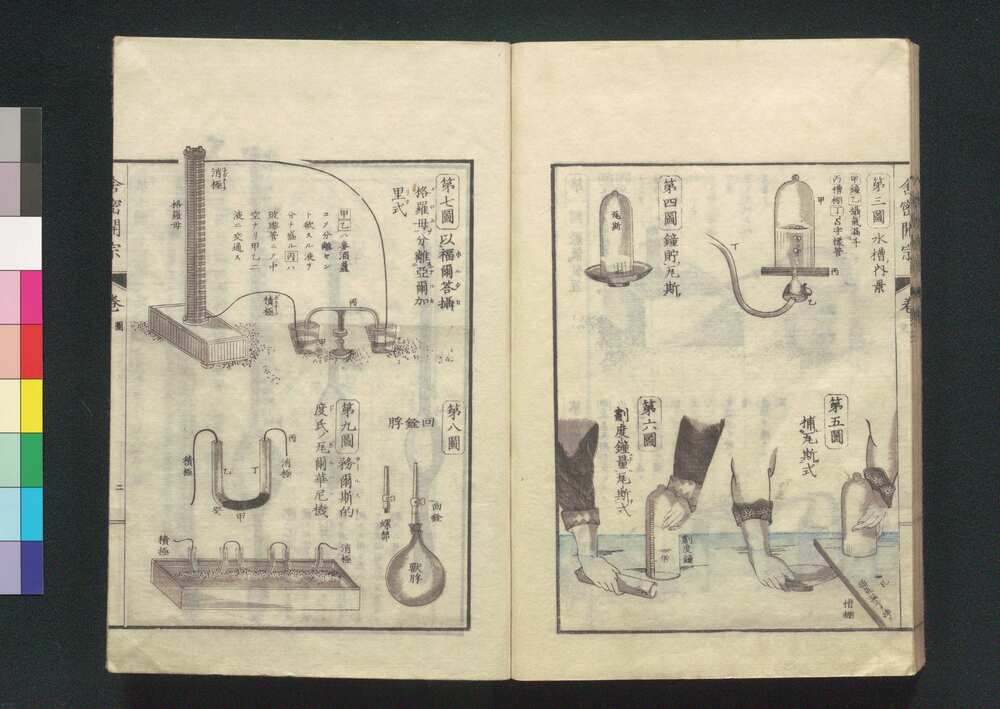 舍密開宗
卷
第三圖 水槽內景
甲鐘乙攝氣漏斗
丙槽棚丁S字樣管
甲
丙
乙
丁
第四圖 鐘貯瓦斯
瓦斯
第五圖
捕瓦斯式
槽棚
第六圖
劃度鐘量瓦斯式
劃度鐘
第七圖 以福爾答攝
格羅母分離亞爾加
里式
消極
格羅母
甲乙ハ麥酒盞
コノ分離セン
ト欲スル液ヲ
分チ盛ル丙ハ
玻璃管ニノ中
空ナリ甲乙二
液ニ交通ス
積極
丙
甲
第八圖
回銓脬
螺部
回銓
獸脬
第九圖 務爾斯的
度氏ノ瓦爾華尼機
丙
消極
丁
乙
積極
甲
積極
消極
舍密開宗
卷
圖
二